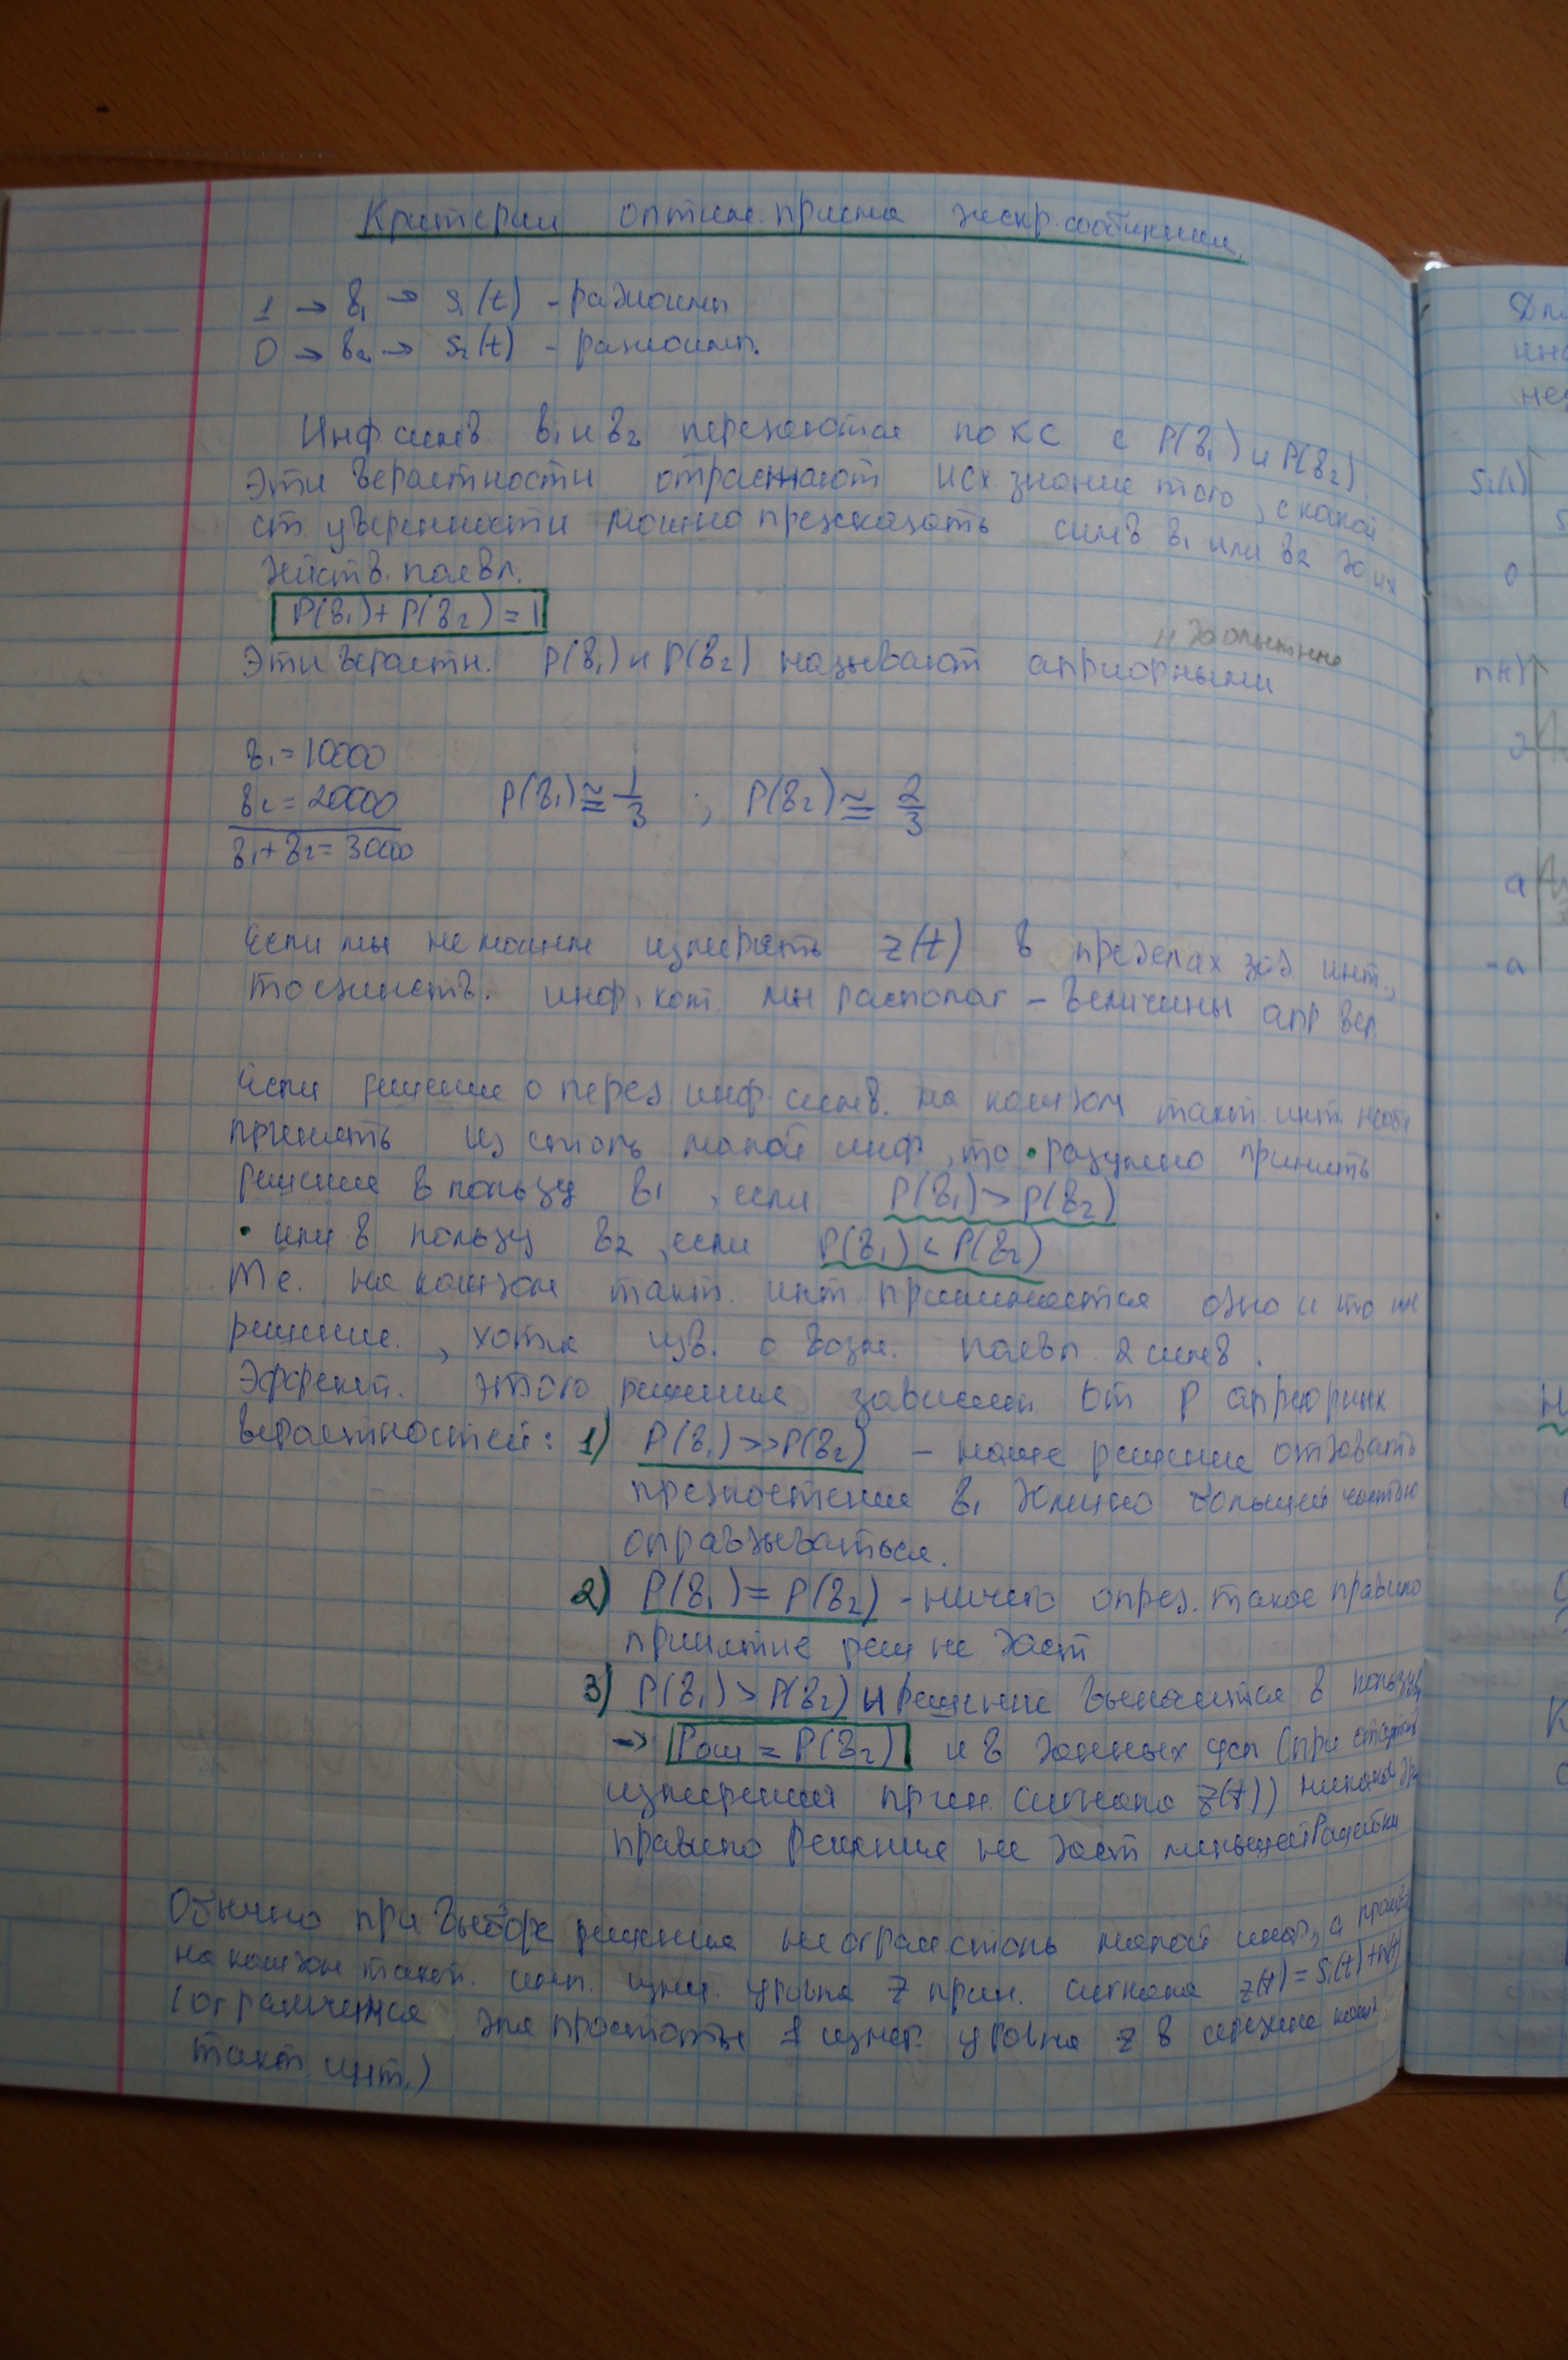 Критерии оптим. приема дискр. сообщении.
1 → в₁ → s₁(t) - радиоимп
0 → в₂ → s₂(t) - радиоимп.
Инф симв. в₁ и в₂ передаются по КС с P(в₁) и P(в₂).
Эти верастности отражают исх. знание того, с какой
ст. уверенности можно предсказать симв в₁ или в₂ до их
действ. появл.
P(в₁) + P(в₂) = 1
"до опытные
Эти верастн. P(в₁) и P(в₂) называют априорными
в₁ = 10000
в₂ = 20000
в₁ + в₂ = 30000
P(в₁) ≅ 1/3 ; P(в₂) ≅ 2/3
Если мы не можем измерять z(t) в пределах зад. инт.,
то единств. инф, кот. мы располаг – величины апр вер
Если решение о перед. инф. симв. на каждом такт. инт. необх
принять из столь малой инф, то • разумно принять
решение в пользу в₁, если P(в₁) > P(в₂)
• или в пользу в₂, если P(в₁) < P(в₂)
Т.е. на каждом такт. инт. принимается одно и то же
решение, хотя изв. о возм. появл 2 симв.
Эффект. этого решения зависит от P априорных
верастностей: 1) P(в₁) >> P(в₂) – наше решение отдавать
предпочтение в₁ должно большей частью
оправдываться.
2) P(в₁) = P(в₂) - ничего опред. такое правило
принятие реш не даст
3) P(в₁) > P(в₂) и решение вынается в пользу в₁
→ Pош = P(в₂) и в данных усл (при отсутств
измерений прин. сигнала z(t)) никакое др
правило решения не даст меньшей Pошибки
Обычно при выборе решения не огран столь малой инф, а произв
на каждом такт. инт. изм. уровня z прин. сигнала z(t) = Sᵢ(t) + n(t)
(ограничимся для простоты 1 измер. уровня z в середине кажд
такт. инт.)
S₂(t)
0
n(t)
a
-a